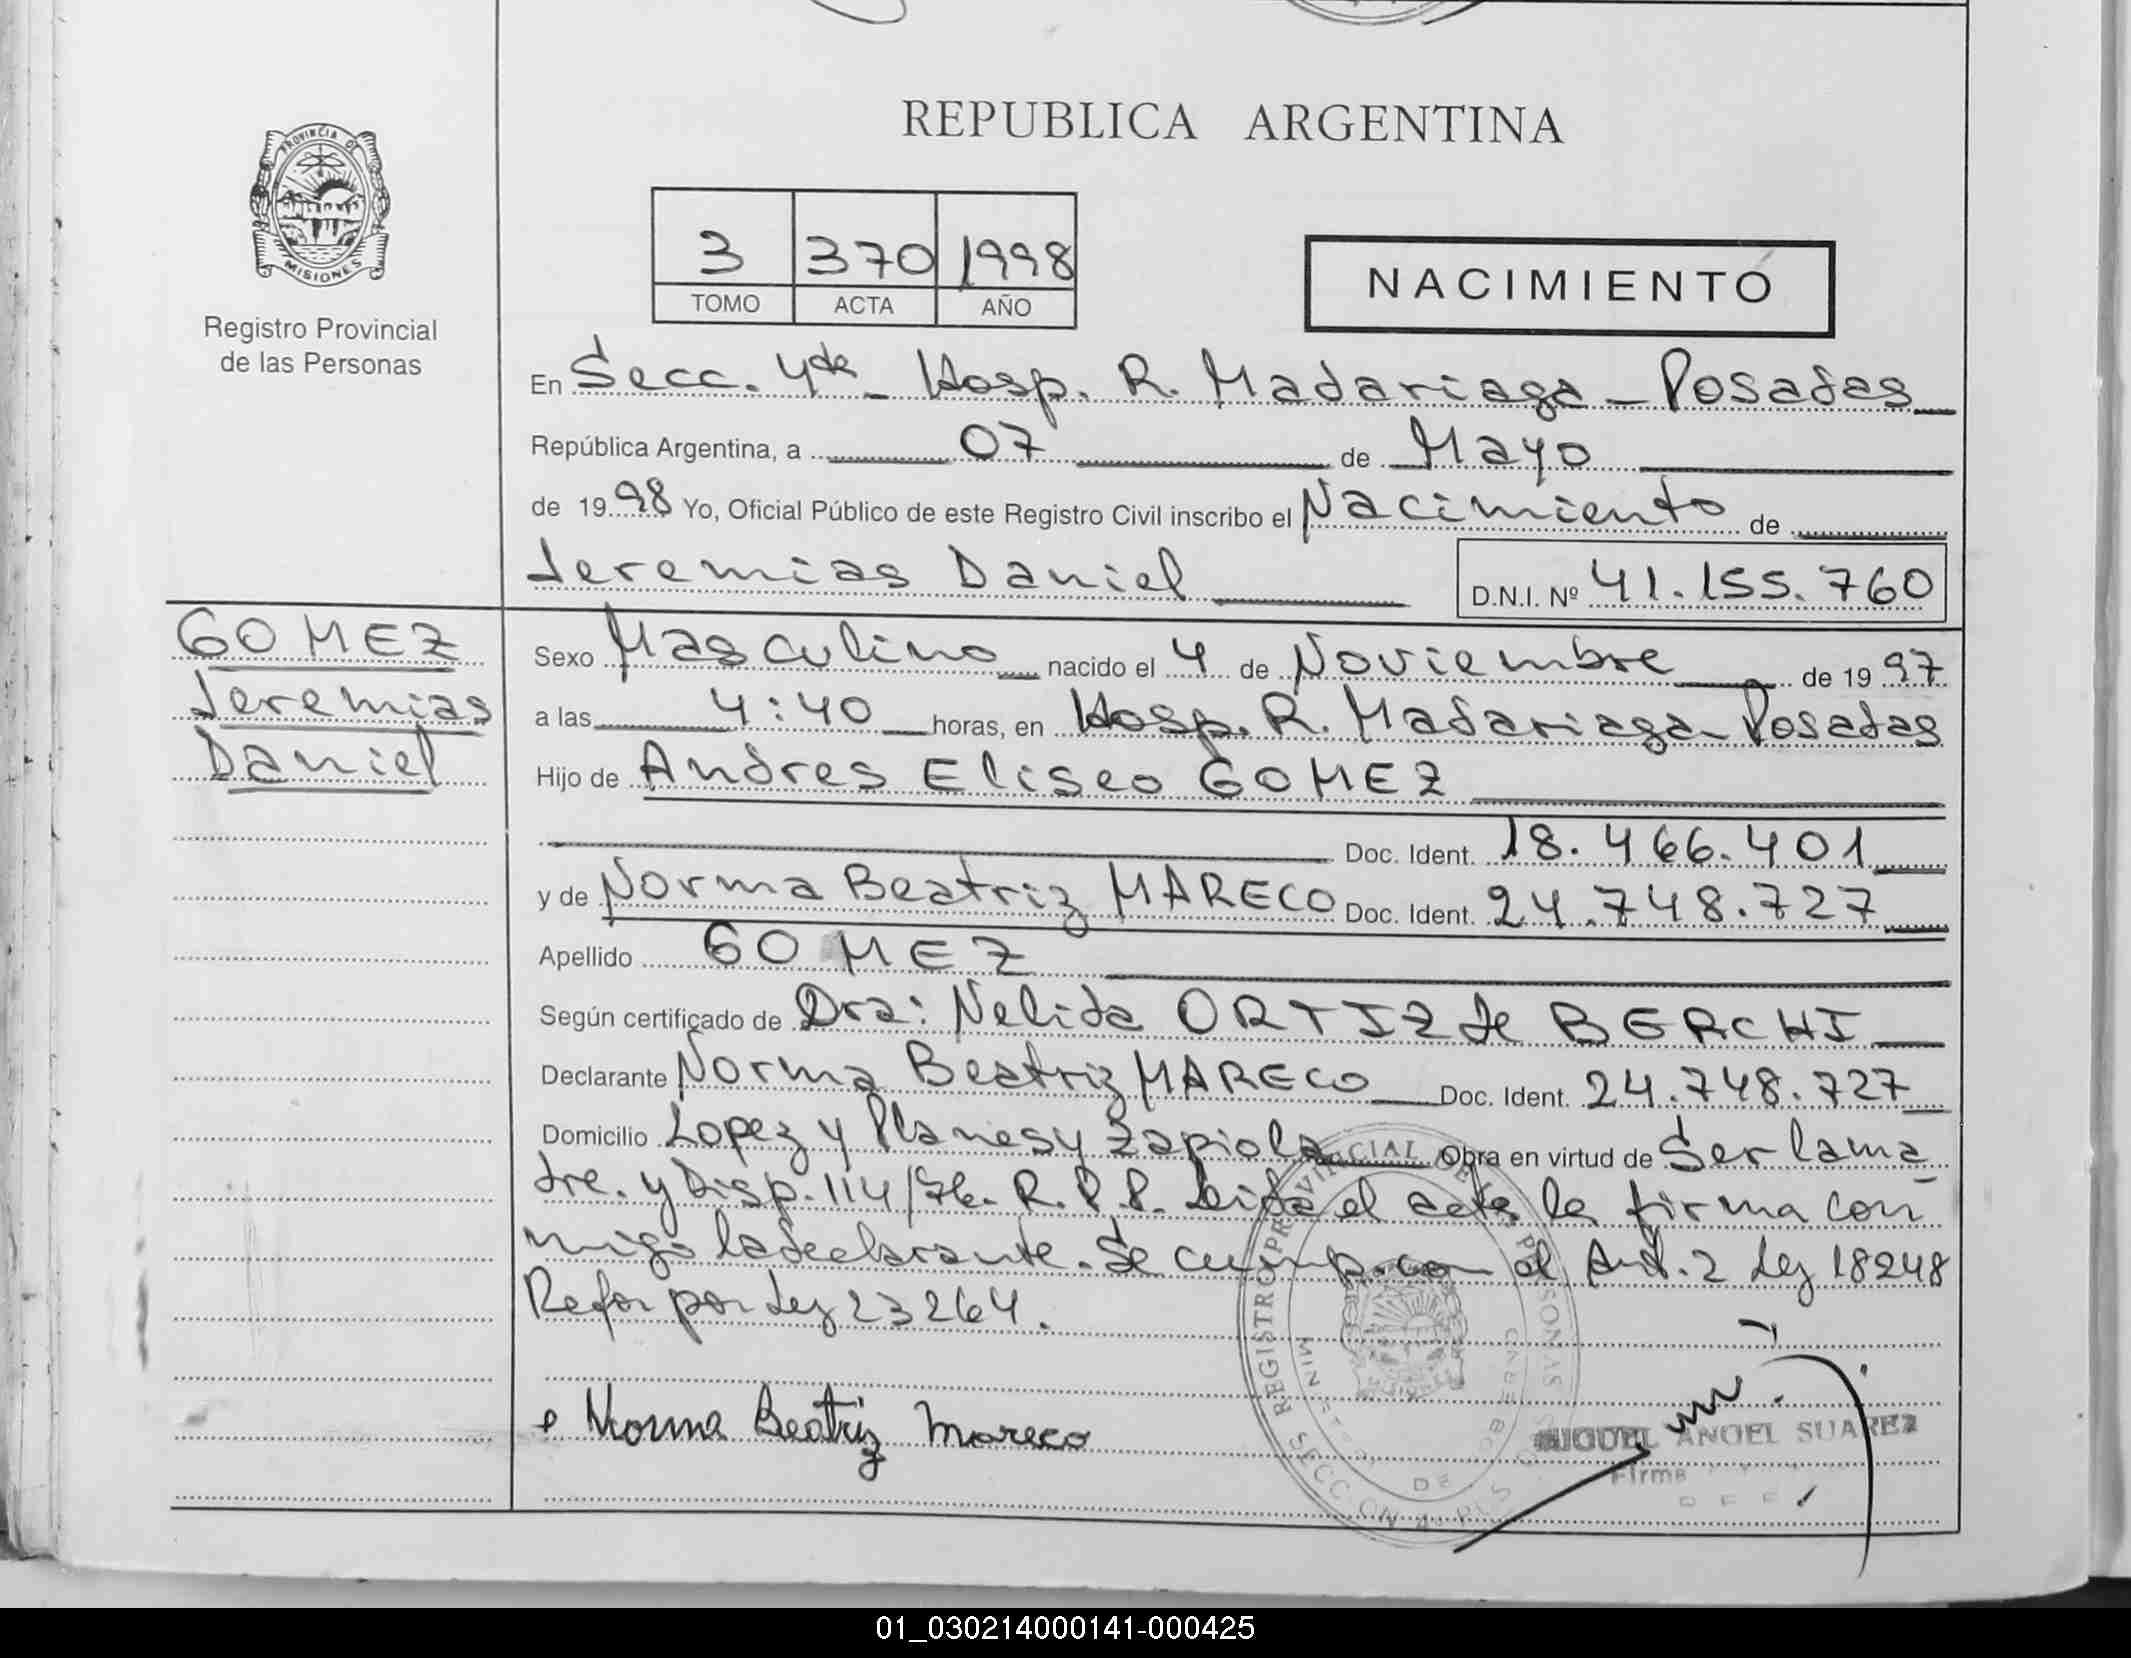 REPUBLICA ARGENTINA
PROVINCIA DE
MISIONES
Registro Provincial
de las Personas
3 370 1998
TOMO ACTA AÑO
NACIMIENTO
En Secc. 4ta - Hosp. R. Madariaga - Posadas
República Argentina, a 07 de Mayo
de 1998 Yo, Oficial Público de este Registro Civil inscribo el Nacimiento de
Jeremias Daniel D.N.I. Nº 41.155.760
GOMEZ
Jeremias
Daniel
Sexo Masculino nacido el 4 de Noviembre de 1997
a las 4:40 horas, en Hosp. R. Madariaga - Posadas
Hijo de Andres Eliseo GOMEZ
Doc. Ident. 18.466.401
y de Norma Beatriz MARECO Doc. Ident. 24.748.727
Apellido GOMEZ
Según certificado de Dra: Nelida ORTIZ de BERCHI
Declarante Norma Beatriz MARECO Doc. Ident. 24.748.727
Domicilio Lopez y Planes y Zapiola Obra en virtud de Ser la ma
dre. y Disp. 114/76. R.P.P. Leida el acta la firma con
migo la declarante. Se cump. con el Art. 2 Ley 18248
Refor por Ley 23264.
Norma Beatriz Mareco
MIGUEL ANGEL SUAREZ
Firma
REGISTRO PROVINCIAL DE PERSONAS
SECCION
01_030214000141-000425